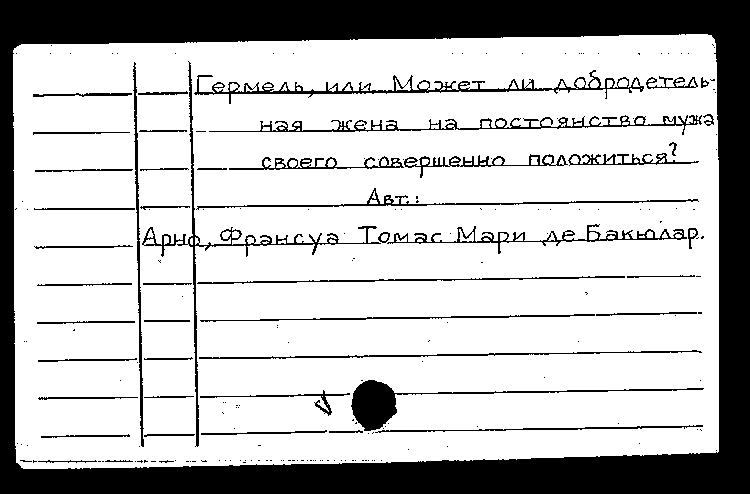 Гермель, или Может ли добродетель-
ная жена на постоянство мужа
своего совершенно положиться?
Авт.:
Арно, Франсуа Томас Мари де Бакюлар.